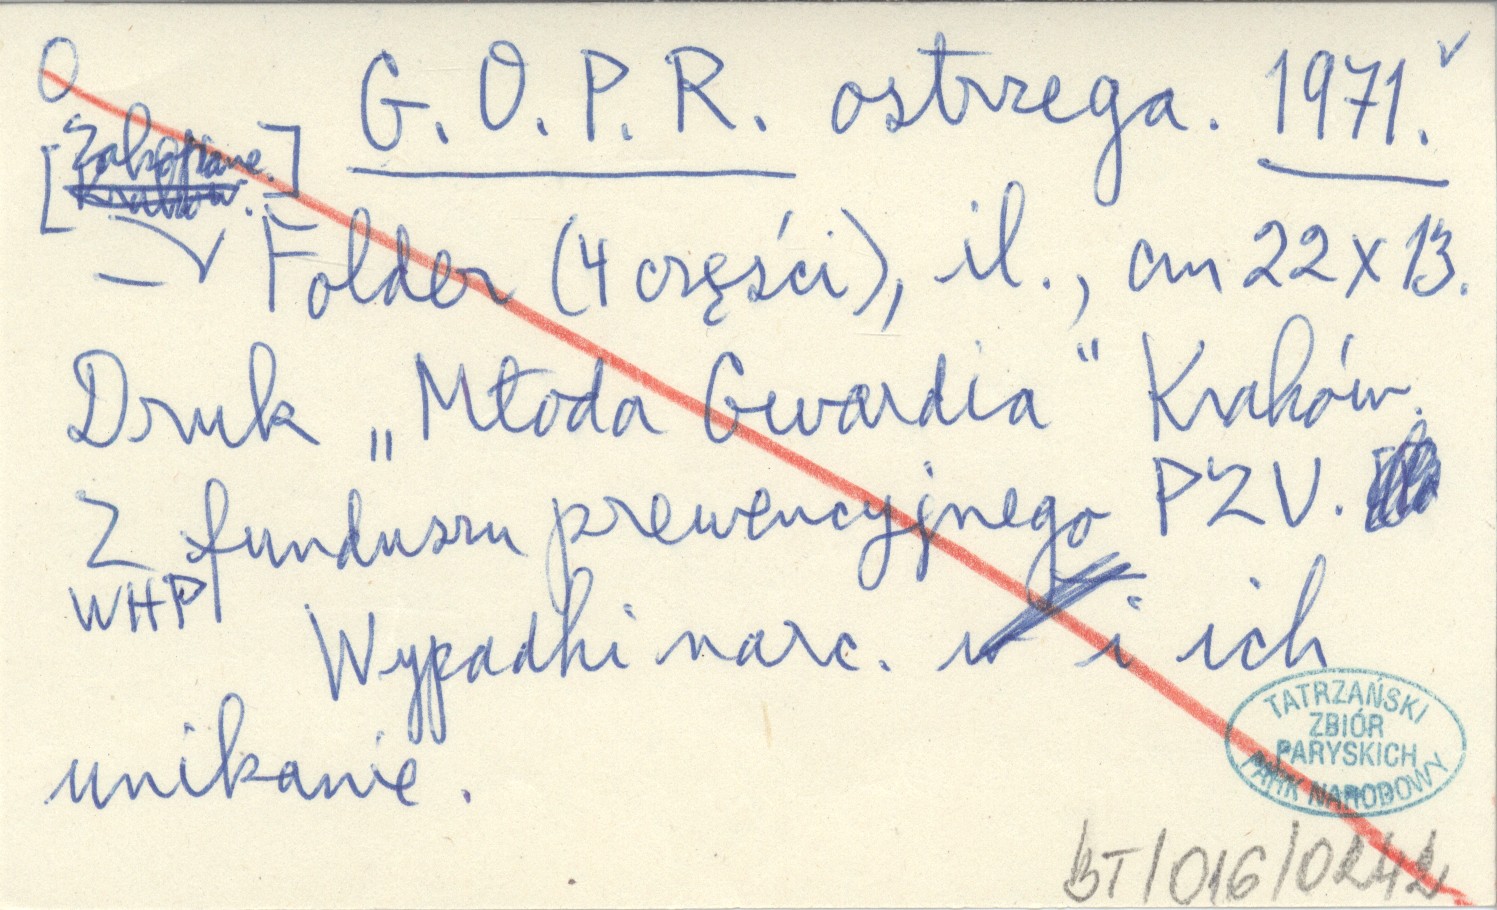 O G.O.P.R. ostrzega. 1971. v
[Zakopane.]
Kraków.
— v Folder (4 części), il., cm 22 x 13.
Druk „Młoda Gwardia" Kraków.
Z funduszu prewencyjnego PZU.
WHP
Wypadki narc. i ich
unikanie.
TATRZAŃSKI
ZBIÓR
PARYSKICH
PARK NARODOWY
BT/016/0242